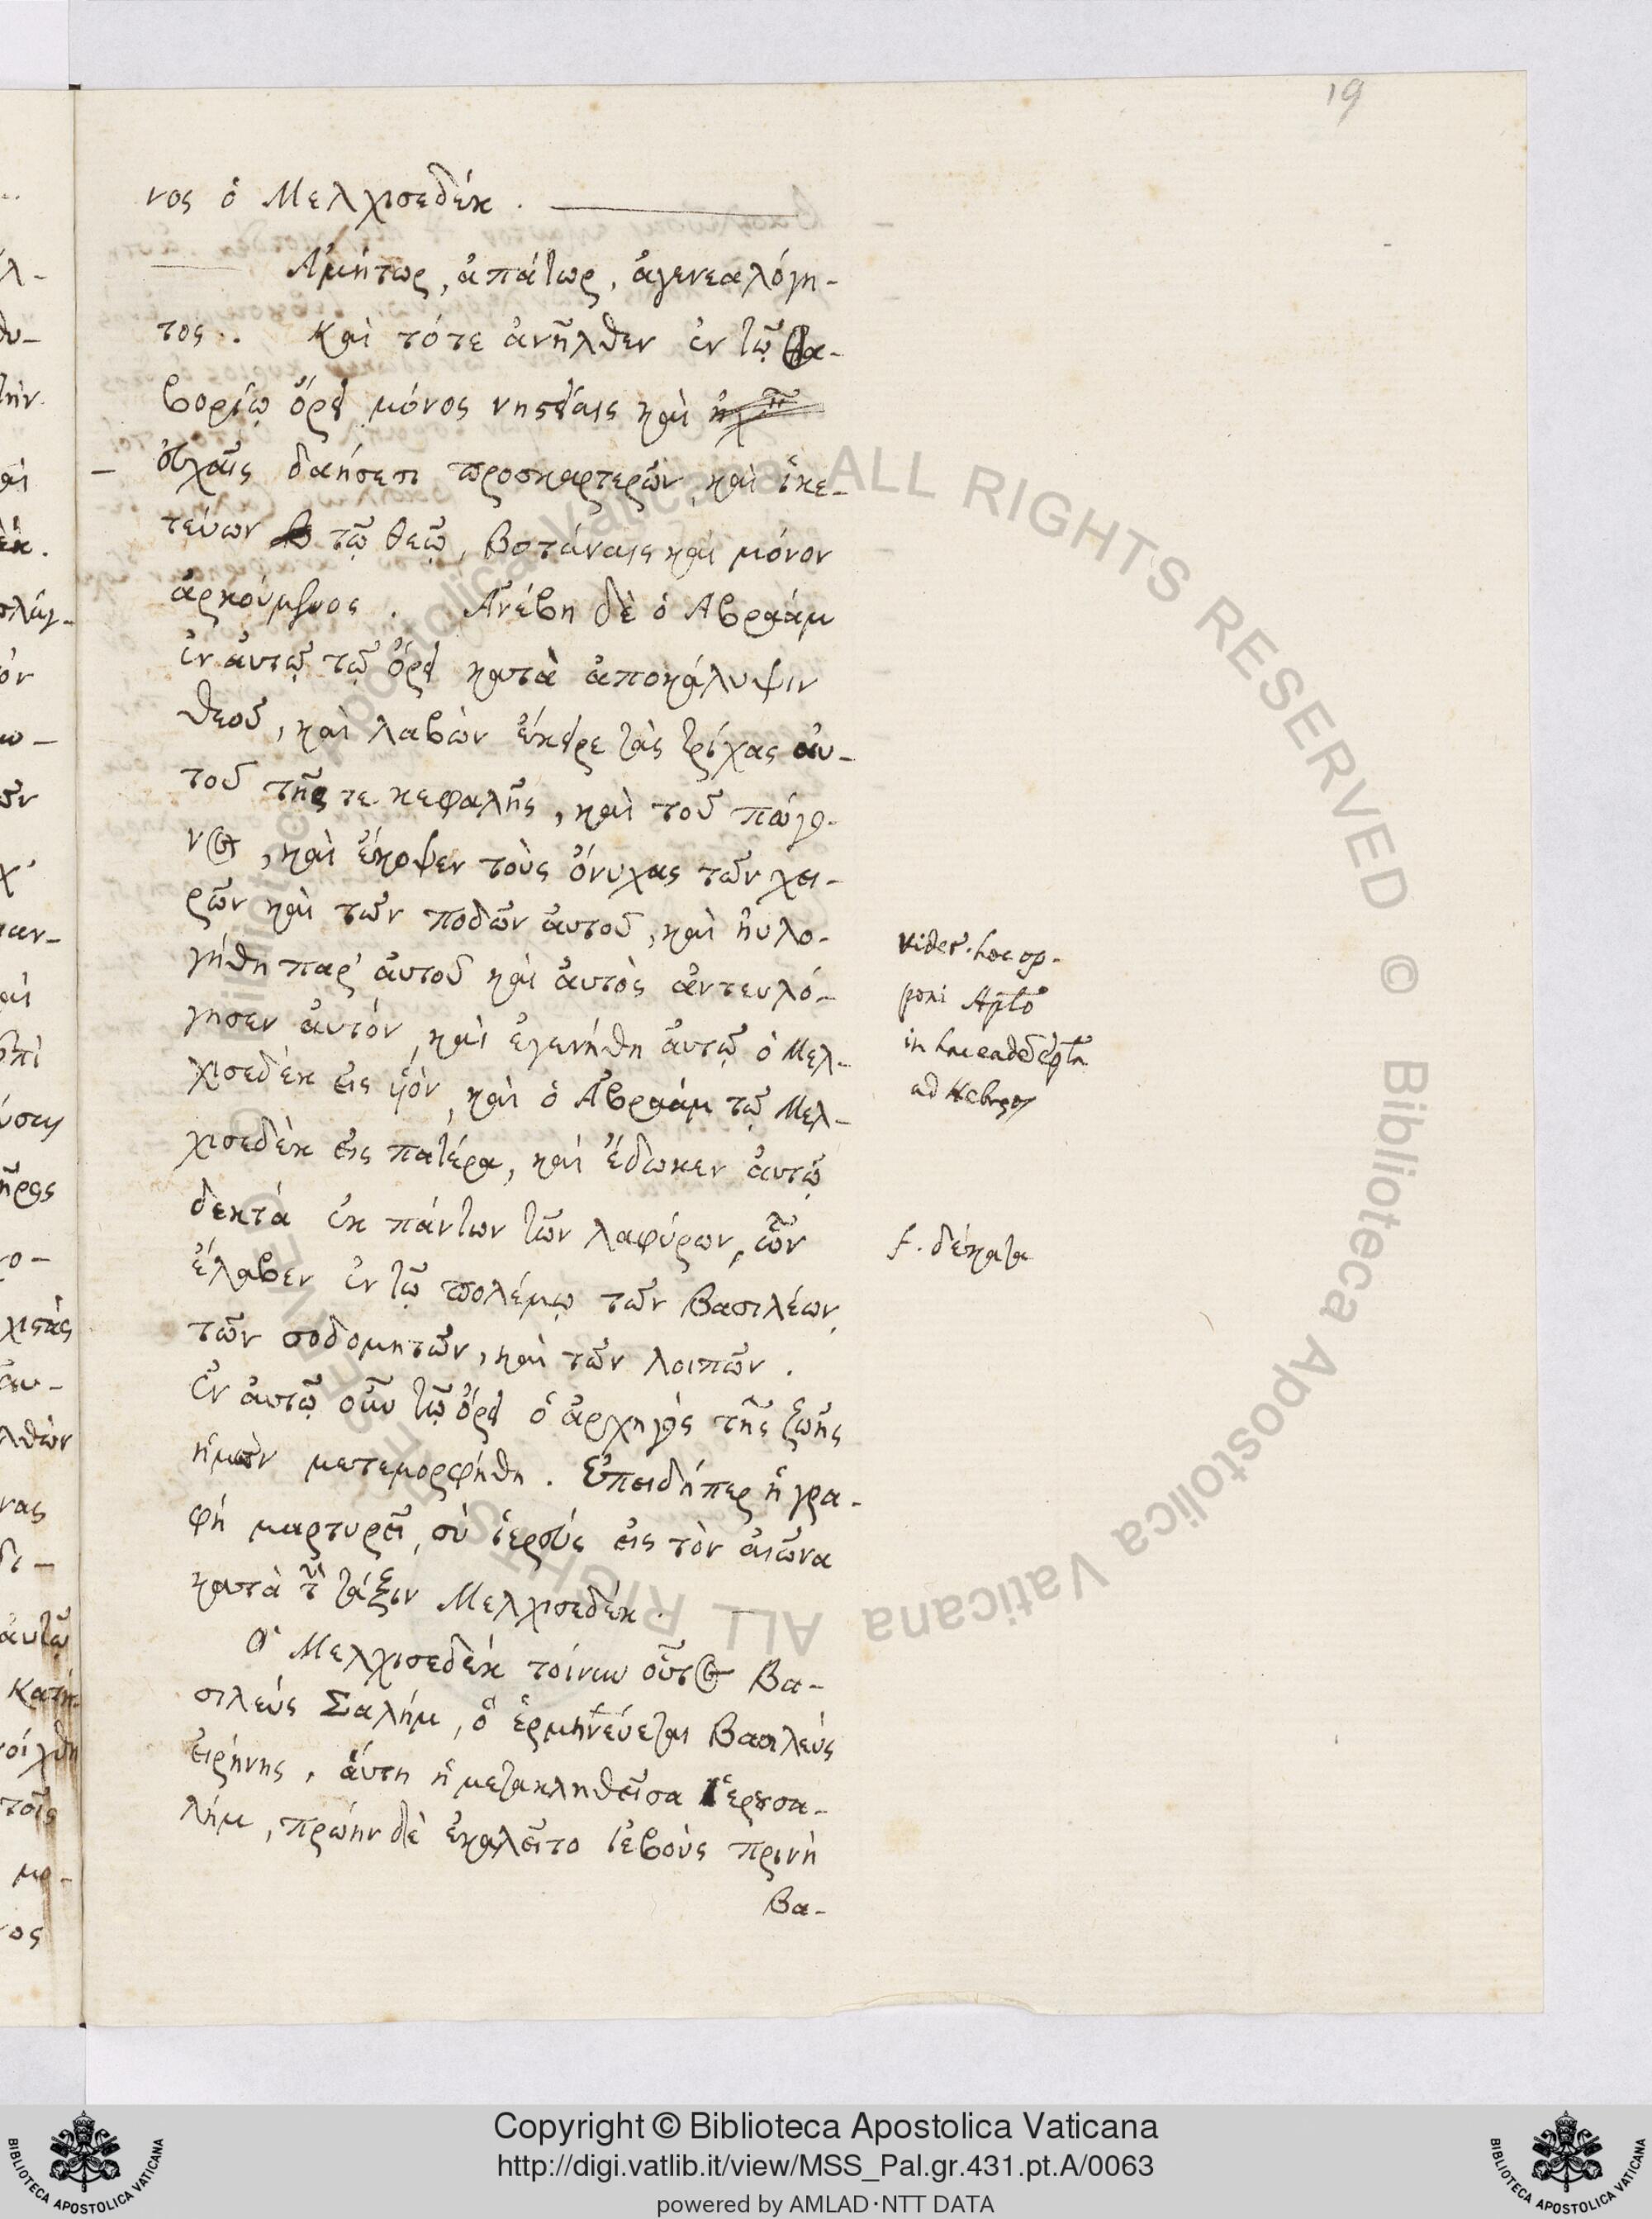 19
νος ὁ Μελχισεδέκ.
Ἀμήτωρ, ἀπάτωρ, ἀγενεαλόγη-
τος. Καὶ τότε ἀνῆλθεν ἐν τῷ Θα-
βορίῳ ὄρει μόνος νηστείαις καὶ
εὐχαῖς δεήσεσι προσκαρτερῶν, καὶ ἱκε-
τεύων τῷ θεῷ, βοτάναις καὶ μόνον
ἀρκούμενος. Ἀνέβη δὲ ὁ Ἀβραάμ
ἐν ἀυτῷ τῷ ὄρει κατὰ ἀποκάλυψιν
θεοῦ, καὶ λαβὼν ἔκειρε τὰς τρίχας ἀυ-
τοῦ τῆς τε κεφαλῆς, καὶ τοῦ πώγο-
νος, καὶ ἔκοψεν τοὺς ὄνυχας τῶν χει-
ρῶν καὶ τῶν ποδῶν ἀυτοῦ, καὶ ἠυλο-
γήθη παρ' ἀυτοῦ καὶ ἀυτὸς ἀντευλό-
γησεν ἀυτόν, καὶ ἐγενήθη ἀυτῷ ὁ Μελ-
χισεδέκ εἰς ὑιόν, καὶ ὁ Ἀβραάμ τῷ Μελ-
χισεδέκ εἰς πατέρα, καὶ ἔδωκεν ἀυτῷ
δεκτά ἐκ πάντων τῶν λαφύρων, ὧν
ἔλαβεν ἐν τῷ πολέμῳ τῶν βασιλέων,
τῶν σοδομητῶν, καὶ τῶν λοιπῶν.
Ἐν ἀυτῷ οὖν τῷ ὄρει ὁ ἀρχηγὸς τῆς ζωῆς
ἡμῶν μετεμορφήθη. Ἐπειδήπερ ἡ γρα-
φή μαρτυρεῖ, σὺ ἱερεύς εἰς τὸν ἀιῶνα
κατὰ τὴν τάξιν Μελχισεδέκ.
Ὁ Μελχισεδέκ τοίνυν οὗτος βα-
σιλεύς Σαλήμ, ὃ ἑρμηνεύεται βασιλεύς
εἰρήνης, ἁύτη ἡ μετακληθεῖσα Ἱερουσα-
λήμ, πρώην δὲ ἐκαλεῖτο Ἰεβούς πρινὴ
βα-
videt. hoc op-
poni Apto
in hac eade eptla
ad Hebræos
f. δέκατα
Copyright © Biblioteca Apostolica Vaticana
http://digi.vatlib.it/view/MSS_Pal.gr.431.pt.A/0063
powered by AMLAD·NTT DATA